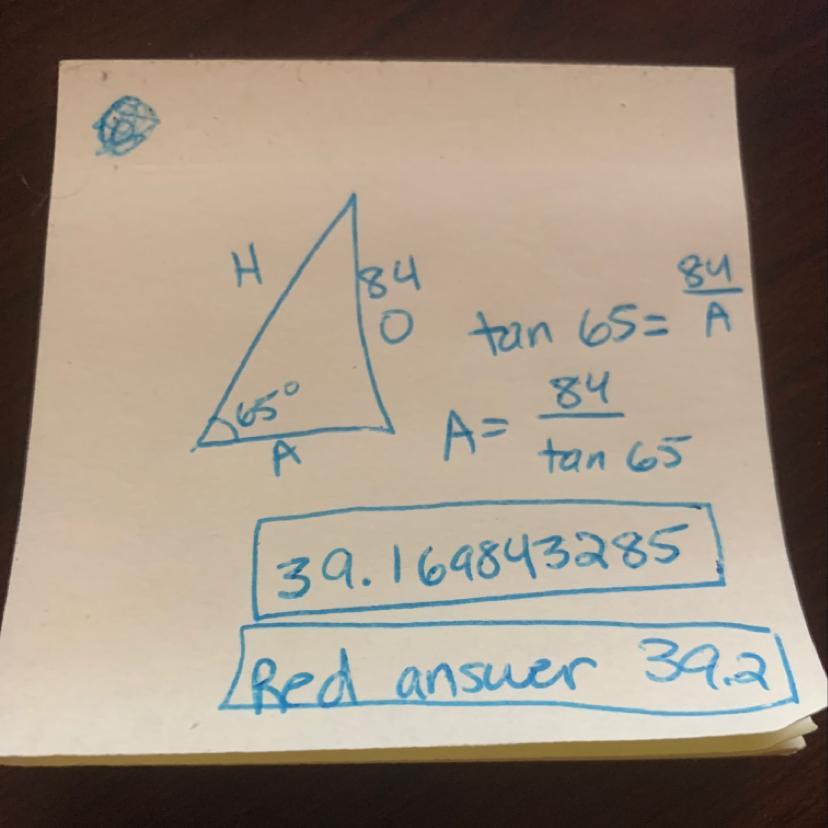 H
84
O
65°
A
tan 65 = 84/A
A = 84/tan 65
39.169843285
Red answer 39.2